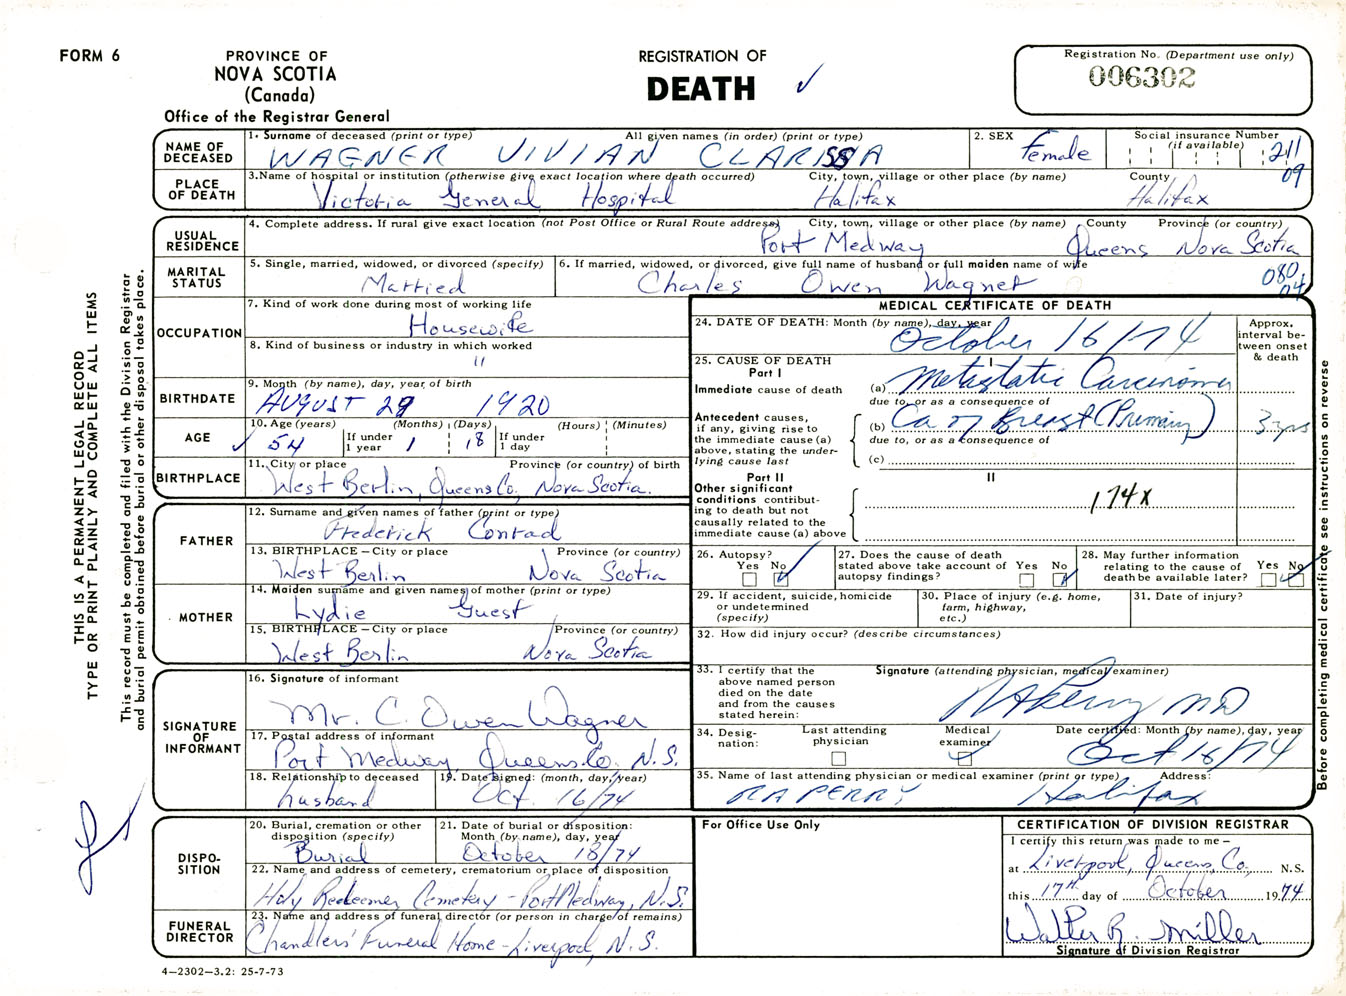 FORM 6
PROVINCE OF
NOVA SCOTIA
(Canada)
Office of the Registrar General
REGISTRATION OF
DEATH ✓
Registration No. (Department use only)
006302
NAME OF DECEASED
1. Surname of deceased (print or type) All given names (in order) (print or type)
WAGNER VIVIAN CLARISSA
2. SEX
Female
Social insurance Number
(if available)
211
09
PLACE OF DEATH
3. Name of hospital or institution (otherwise give exact location where death occurred) City, town, village or other place (by name) County
Victoria General Hospital Halifax Halifax
USUAL RESIDENCE
4. Complete address. If rural give exact location (not Post Office or Rural Route address) City, town, village or other place (by name) County Province (or country)
Port Medway Queens Nova Scotia
080
04
MARITAL STATUS
5. Single, married, widowed, or divorced (specify)
Married
6. If married, widowed, or divorced, give full name of husband or full maiden name of wife
Charles Owen Wagner
OCCUPATION
7. Kind of work done during most of working life
Housewife
8. Kind of business or industry in which worked
"
BIRTHDATE
9. Month (by name), day, year of birth
AUGUST 29 1920
AGE
10. Age (years) (Months) (Days) (Hours) (Minutes)
✓ 54 If under 1 year 1 18 If under 1 day
BIRTHPLACE
11. City or place Province (or country) of birth
West Berlin, Queens Co, Nova Scotia.
FATHER
12. Surname and given names of father (print or type)
Frederick Conrad
13. BIRTHPLACE – City or place Province (or country)
West Berlin Nova Scotia
MOTHER
14. Maiden surname and given names of mother (print or type)
Lydie Guest
15. BIRTHPLACE – City or place Province (or country)
West Berlin Nova Scotia
SIGNATURE OF INFORMANT
16. Signature of informant
Mr. C. Owen Wagner
17. Postal address of informant
Port Medway, Queens Co. N.S.
18. Relationship to deceased
husband
19. Date signed: (month, day, year)
Oct. 16/74
DISPOSITION
20. Burial, cremation or other disposition (specify)
Burial
21. Date of burial or disposition: Month (by name), day, year
October 18/74
22. Name and address of cemetery, crematorium or place of disposition
Holy Redeemer Cemetery - Port Medway, N.S.
FUNERAL DIRECTOR
23. Name and address of funeral director (or person in charge of remains)
Chandlers' Funeral Home - Liverpool, N.S.
4—2302—3.2: 25-7-73
MEDICAL CERTIFICATE OF DEATH
24. DATE OF DEATH: Month (by name), day, year
October 16/74
Approx. interval between onset & death
25. CAUSE OF DEATH
Part I
I
Immediate cause of death
(a) Metastatic Carcinoma
due to, or as a consequence of
Antecedent causes, if any, giving rise to the immediate cause (a) above, stating the underlying cause last
(b) Ca of Breast (Primary) 3 yrs
due to, or as a consequence of
(c)
Part II
II
Other significant conditions contributing to death but not causally related to the immediate cause (a) above
174X
26. Autopsy? Yes No ✓
27. Does the cause of death stated above take account of autopsy findings? Yes No ✓
28. May further information relating to the cause of death be available later? Yes No ✓
29. If accident, suicide, homicide or undetermined (specify)
30. Place of injury (e.g. home, farm, highway, etc.)
31. Date of injury?
32. How did injury occur? (describe circumstances)
33. I certify that the above named person died on the date and from the causes stated herein:
Signature (attending physician, medical examiner)
RAPerry MD
34. Designation: Last attending physician Medical examiner ✓
Date certified: Month (by name), day, year
Oct 16/74
35. Name of last attending physician or medical examiner (print or type) Address:
RA PERRY Halifax
For Office Use Only
CERTIFICATION OF DIVISION REGISTRAR
I certify this return was made to me —
at Liverpool, Queens Co, N.S.
this 17th day of October 1974
Walter R. Miller
Signature of Division Registrar
THIS IS A PERMANENT LEGAL RECORD
TYPE OR PRINT PLAINLY AND COMPLETE ALL ITEMS
This record must be completed and filed with the Division Registrar
and burial permit obtained before burial or other disposal takes place.
Before completing medical certificate see instructions on reverse